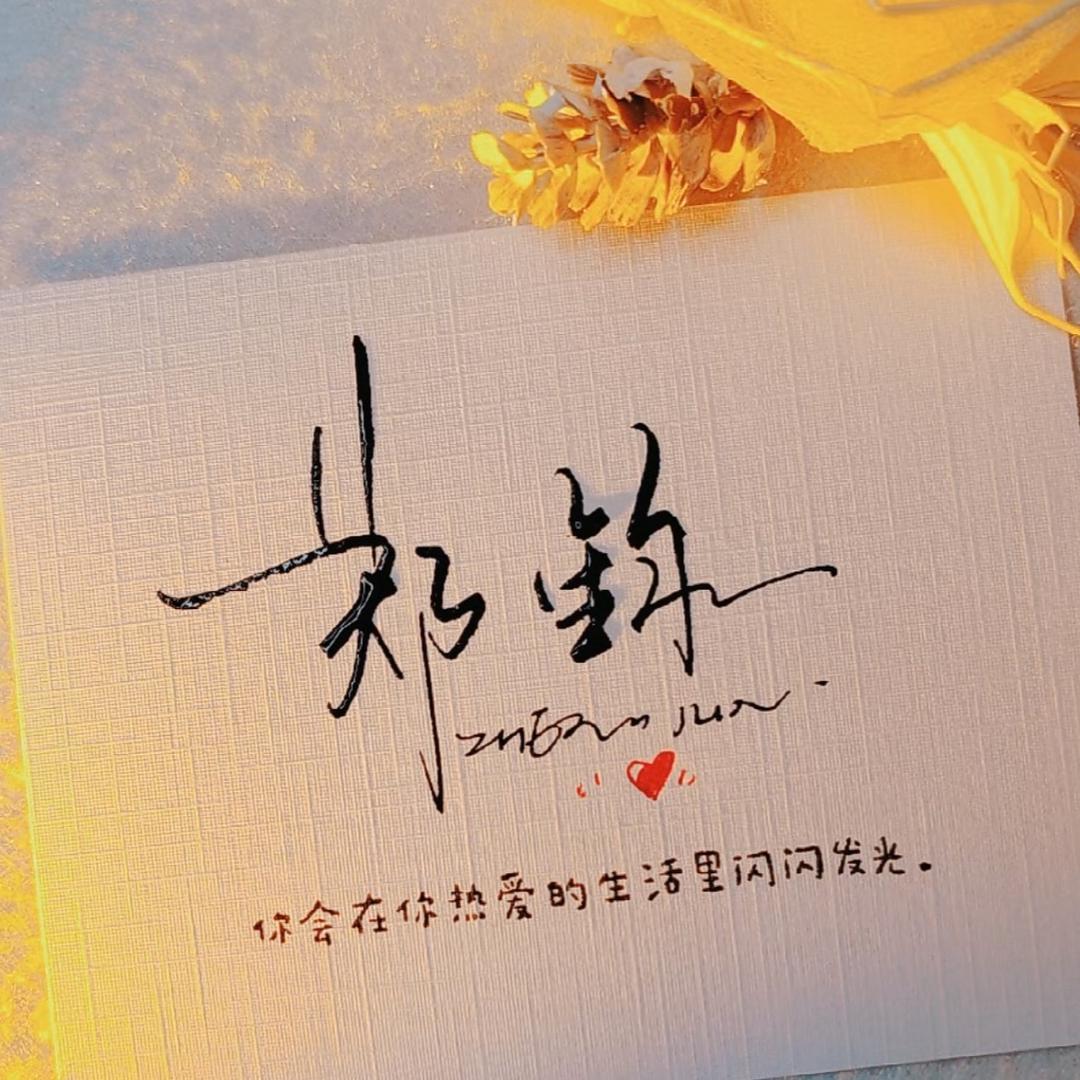 郑
你会在你热爱的生活里闪闪发光。